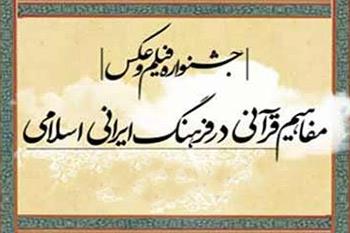 |جشنواره فیلم و عکس|
مفاهیم قرآنی در فرهنگ ایرانی اسلامی